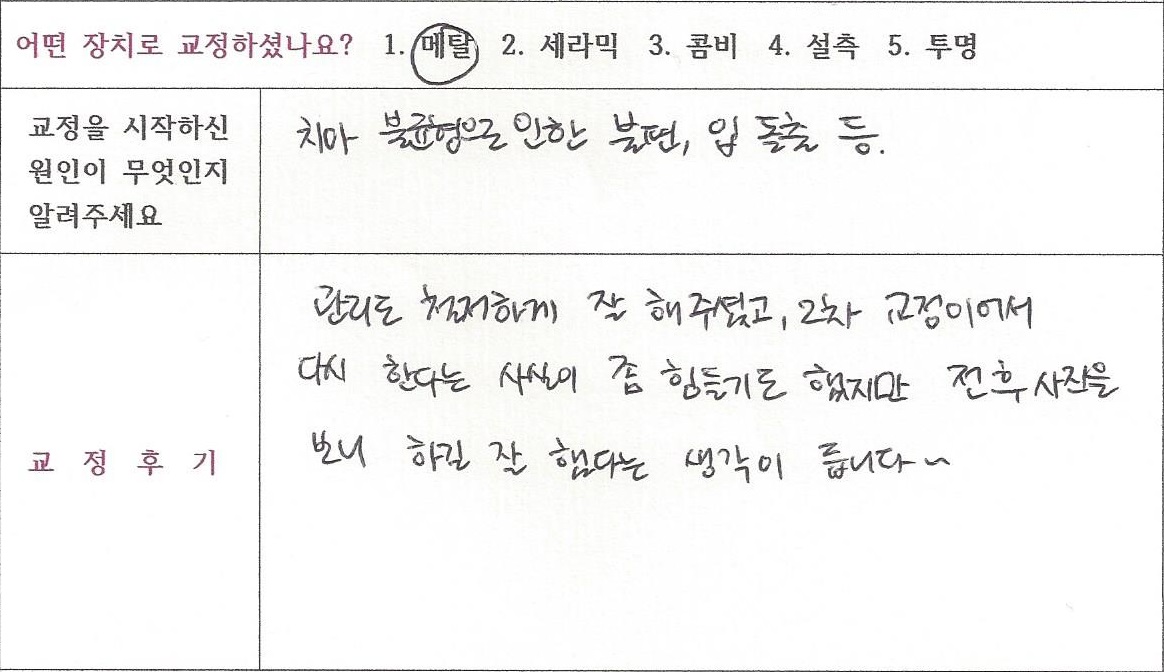 어떤 장치로 교정하셨나요? 1. 메탈 2. 세라믹 3. 콤비 4. 설측 5. 투명
교정을 시작하신
원인이 무엇인지
알려주세요
치아 불균형으로 인한 불편, 입 돌출 등.
교 정 후 기
관리도 철저하게 잘 해주셨고, 2차 교정이어서
다시 한다는 사실이 좀 힘들기도 했지만 전후 사진을
보니 하길 잘 했다는 생각이 듭니다~